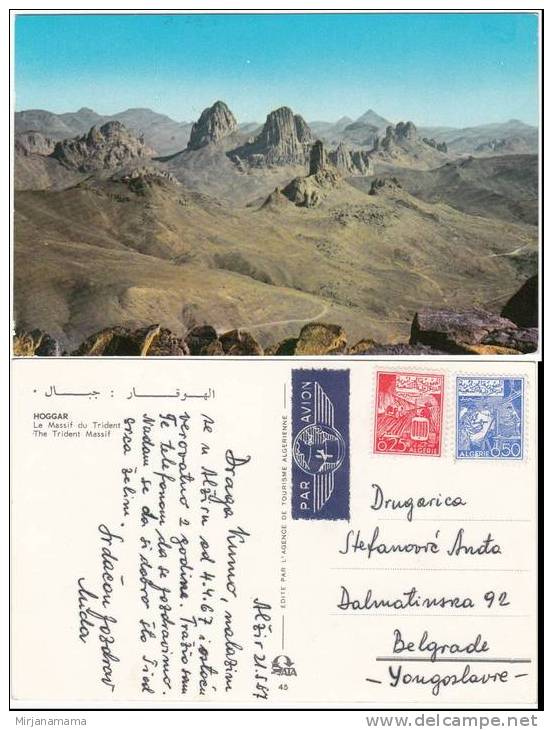 الهوقار : جبال .
HOGGAR
Le Massif du Trident
The Trident Massif
Alžir 21.5.67
Draga Kumo, nalazim
se u Alžiru od 4.4.67 i ostaću
verovatno 2 godine. Tražio sam
Te telefonom da se pozdravimo.
Nadam se da si dobro što Ti od
srca želim.
Srdačan pozdrav
EDITÉ PAR L'AGENCE DE TOURISME ALGERIENNE
45
PAR AVION
0.25 ALGERIE
ALGERIE 0.50
Drugarica
Stefanović Anđa
Dalmatinska 92
Belgrade
- Yougoslavie -
Mirjanamama